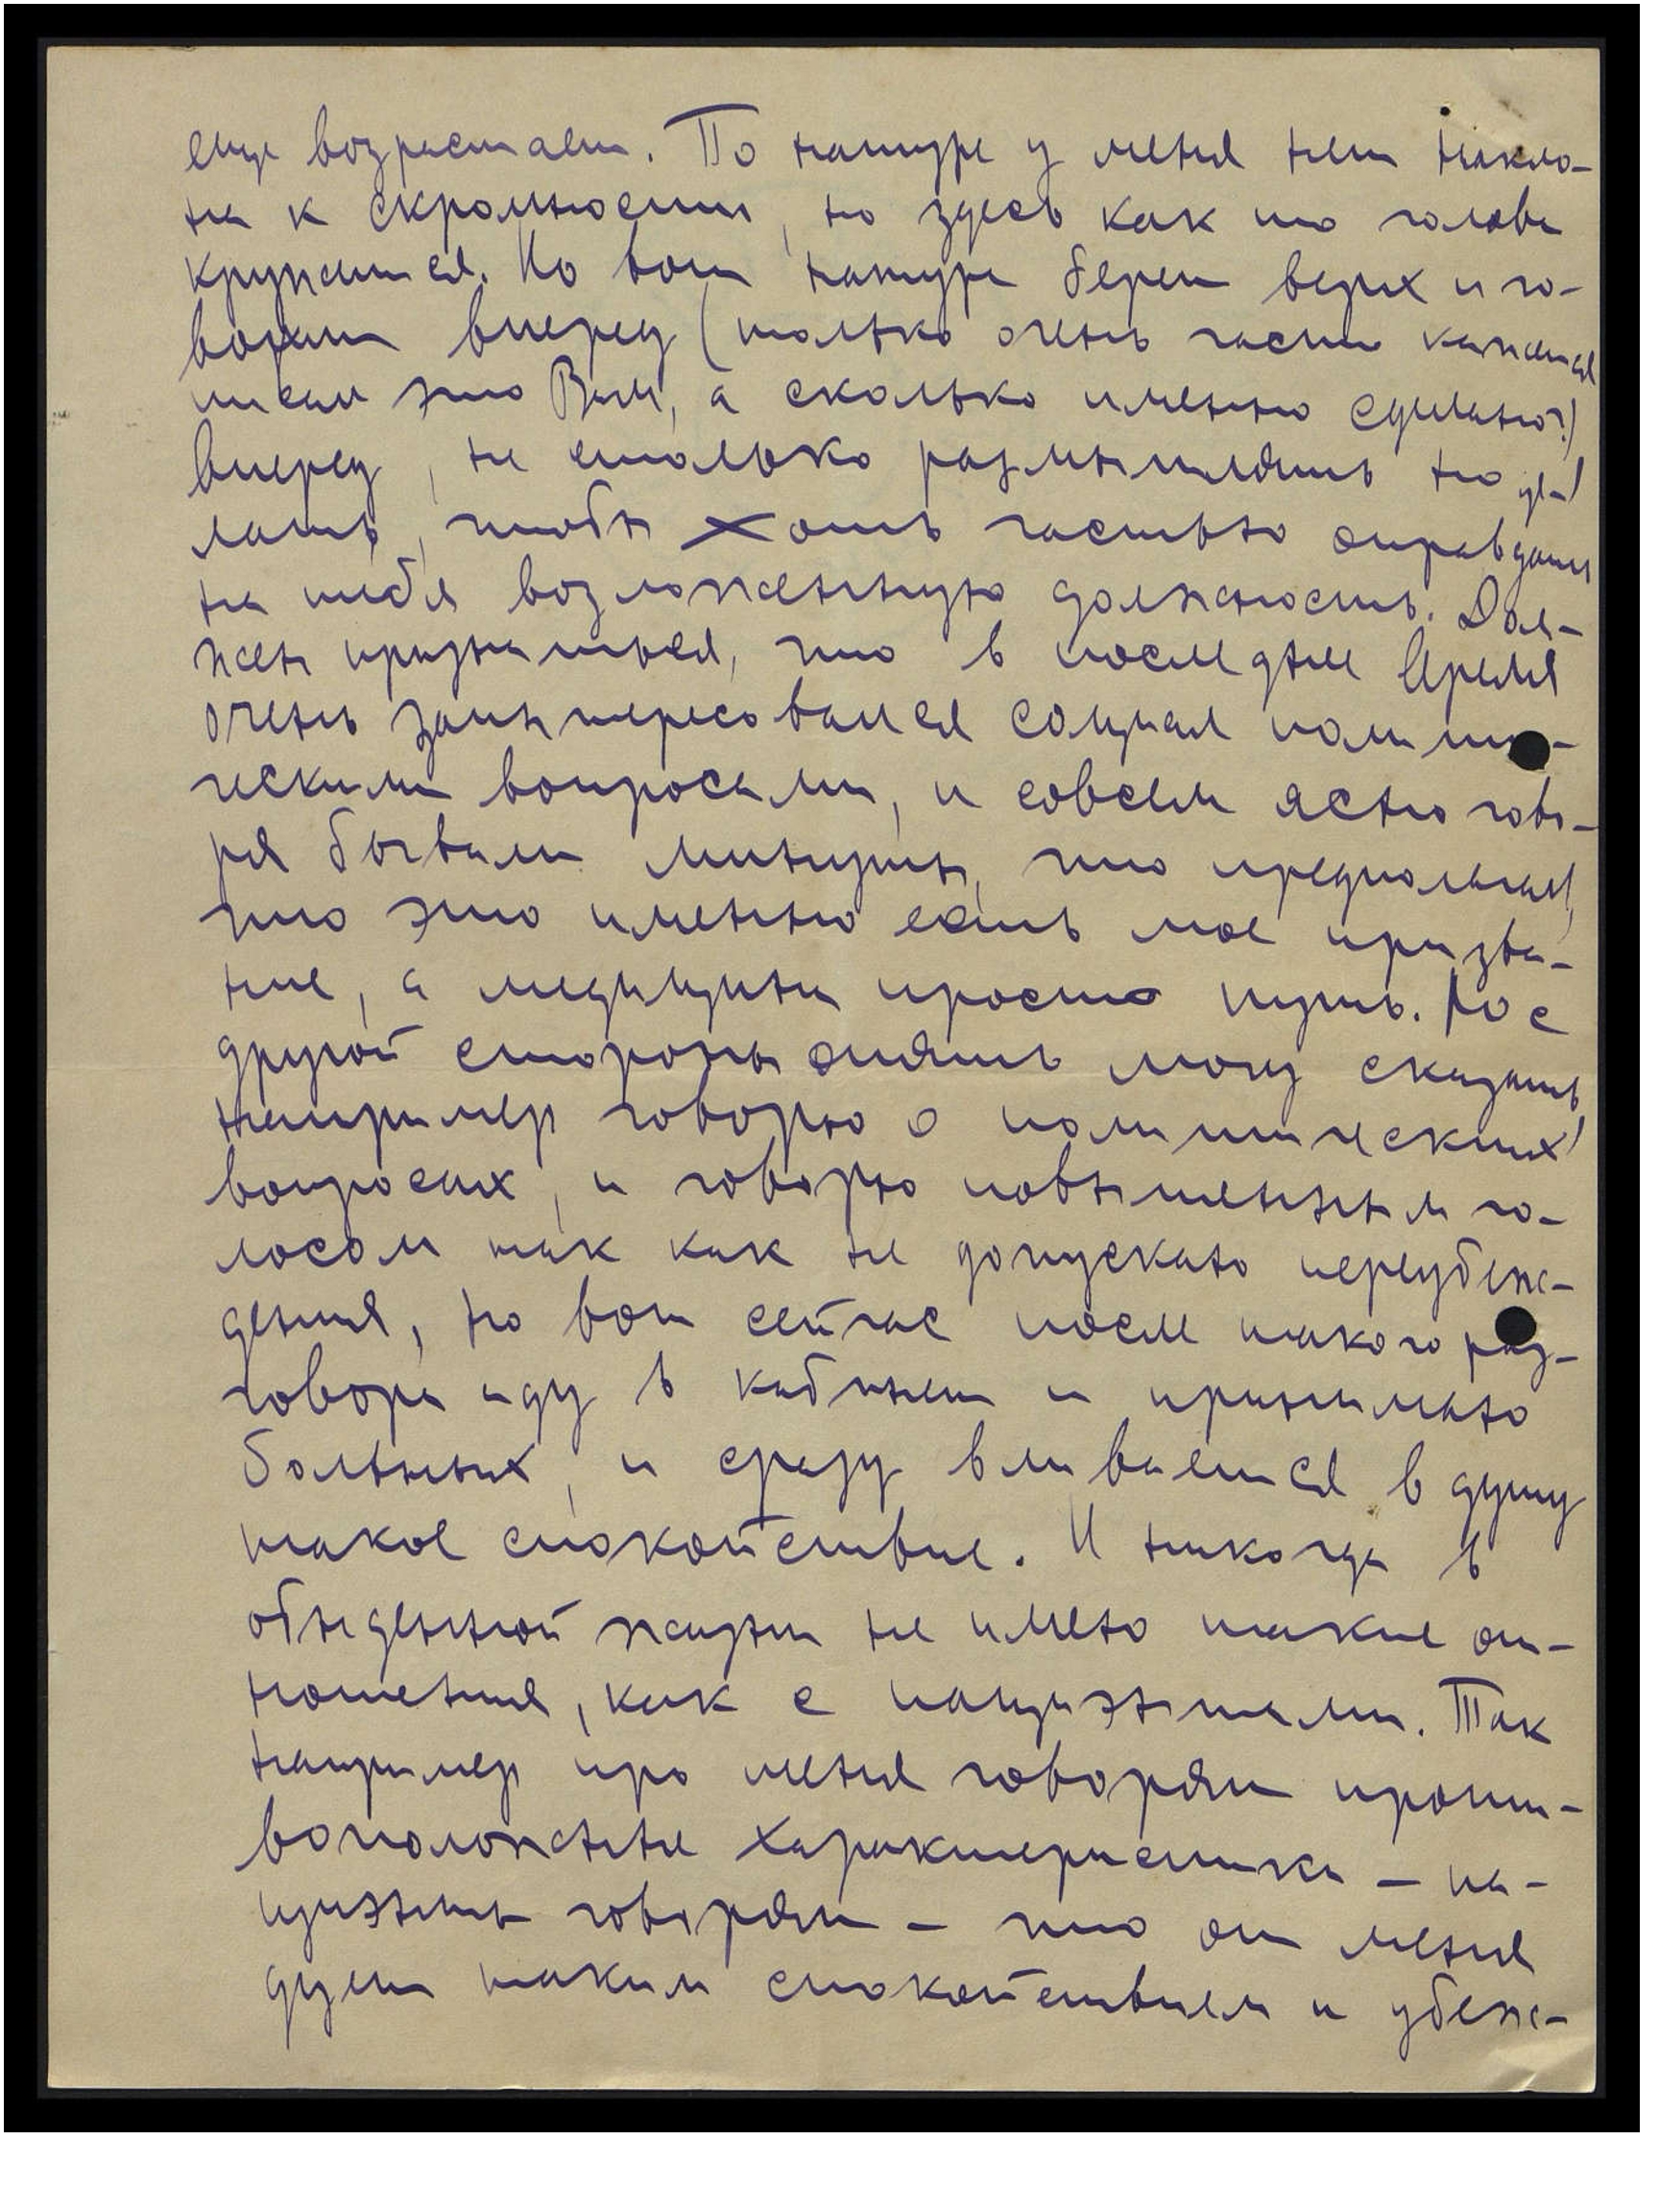 еще возрастает. По натуре у меня нет накло-
на к скромности, но здесь как то голова
кружится. Но вот натура берет верх и го-
ворит вперед (только очень часто кажется
писал это Вам, а сколько именно сделано?)
вперед, не столько размышлять но де-
лать, чтобы хоть частью оправдать
на тебя возложенную должность. Дол-
жен признаться, что в последнее время
очень заинтересовался социал полити-
ческими вопросами, и совсем ясно гово-
ря бывали минуты, что предполагал,
что это именно есть мое призва-
ние, а медицина просто путь. Но с
другой стороны опять могу сказать,
например говорю о политических
вопросах, и говорю повышенным го-
лосом так как не допускаю переубеж-
дения, но вот сейчас после такого раз-
говора иду в кабинет и принимаю
больных, и сразу вливается в душу
такое спокойствие. И никогда в
обыденной жизни не имею такие от-
ношения, как с пациэнтами. Так
например про меня говорят проти-
воположные характеристики – па-
циэнты говорят – что от меня
дует таким спокойствием и убеж-